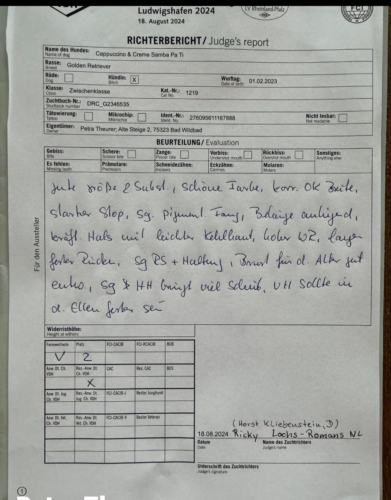 Ludwigshafen 2024
18. August 2024
RICHTERBERICHT / Judge's report
Name des Hundes: Cappuccino & Creme Samba Pa Ti
Name of dog
Rasse: Golden Retriever
Breed
Rüde: Hündin: X Wurftag: 01.02.2023
Dog Bitch Date of birth
Klasse: Zwischenklasse Kat.-Nr.: 1219
Class Cat. No.
Zuchtbuch-Nr.: DRC_G2346535
Studbook number
Tätowierung: Mikrochip: Ident.-Nr.: 276095611167888 Nicht lesbar:
Tattoo Microchip Ident. No. Not readable
Eigentümer: Petra Theurer; Alte Steige 2, 75323 Bad Wildbad
Owner
BEURTEILUNG / Evaluation
Gebiss: Schere: Zange: Vorbiss: Rückbiss: Sonstiges:
Bite Scissor bite Pincer bite Undershot mouth Overshot mouth Anything else
Es fehlen: Prämolare: Schneidezähne: Eckzähne: Molaren:
Missing teeth Premolars Incisors Canines Molars
Für den Aussteller
gute Größe & Subst, schöne Farbe, korr. OK Breite,
starker Stop, sg. Pigment Fang, Behänge anliegend,
kräft. Hals mit leichter Kehlhaut, hoher WR, langer
fester Rücken, sg RS + Haltung, Brust für d. Alter gut
entw, sg HH bringt viel Schub, VH sollte in
d. Ellen fester sein
Widerristhöhe:
Height at withers
Formwertnote Platz FCI-CACIB FCI-RCACIB BOB
V 2
Anw. Dt. Ch. VDH Res.-Anw. Dt. Ch. VDH CAC Res. CAC BOS
X
Anw. Dt. Jug. Ch. VDH Res.-Anw. Dt. Jug. Ch. VDH FCI-CACIB-J Bester Junghund
Anw. Dt. Vet. Ch. VDH Res.-Anw. Dt. Vet. Ch. VDH FCI-CACIB-V Bester Veteran
(Horst Kliebenstein, D)
18.08.2024 Ricky Lochs-Romans NL
Datum Name des Zuchtrichters
Date Judge's name
Unterschrift des Zuchtrichters
Judge's signature
1